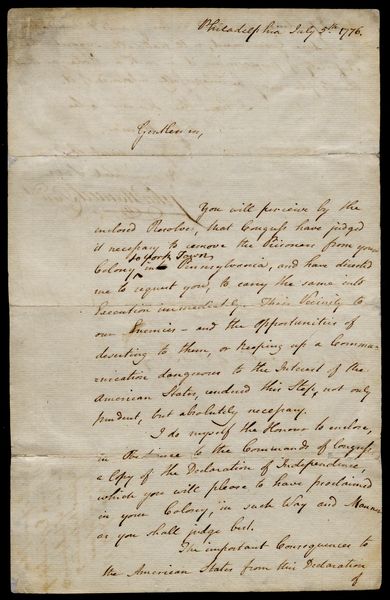 Philadelphia July 5th. 1776.
Gentlemen,
You will perceive by the
enclosed Resolves, that Congress have judged
it necessary to remove the Prisoners from your
to York Town
Colony in Pennsylvania, and have directed
me to request you, to carry the same into
Execution immediately. Their Vicinity to
our Enemies - and the Opportunities of
deserting to them, or keeping up a Commu-
nication dangerous to the Interest of the
American States, rendered this Step, not only
prudent, but absolutely necessary.
I do myself the Honour to enclose,
in Obedience to the Commands of Congress,
a Copy of the Declaration of Independence,
which you will please to have proclaimed
in your Colony, in such Way and Manner
as you shall judge best.
The important Consequences to
the American States from this Declaration
of